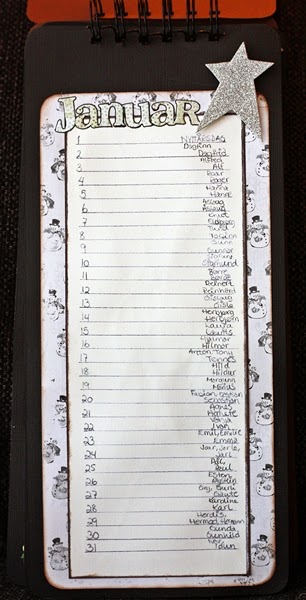 Januar
1 NYTTÅRSDAG
Dagfinn
2 Dagfrid
Alfred
3 Alf
Roar
4 Roger
Hanna
5 Hanne
Aslaug
6 Åslaug
Knut
7 Eldbjørg
Turid
8 Torfinn
Gunn
9 Gunnar
Sigrun
10 Sigmund
Børre
11 Børge
Reinert
12 Reinhard
Gislaug
13 Gisle
Herbjørg
14 Herbjørn
Laura
15 Laurits
Hjalmar
16 Hilmar
Anton, Tony
17 Tønnes
Hild
18 Hildur
Margunn
19 Marius
Fabian, Bastian
20 Sebastian
Agnes
21 Agnete
Vanja
22 Ivan
Emil, Emilie
23 Emma
Joar, Jarle,
24 Jarl
Pål
25 Paul
Esten
26 Øystein
Gry, Gurli
27 Gaute
Karoline
28 Karl
Herdis,
29 Hermod, Hermann
Gunda
30 Gunnhild
Ivar
31 Idun